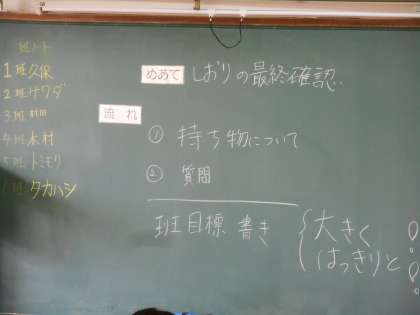 班ノート
1班久保
2班サワダ
3班村田
4班木村
5班トミモリ
班タカハシ
めあて しおりの最終確認
流れ
① 持ち物について
② 質問
班目標書き
大きく
はっきりと
!!